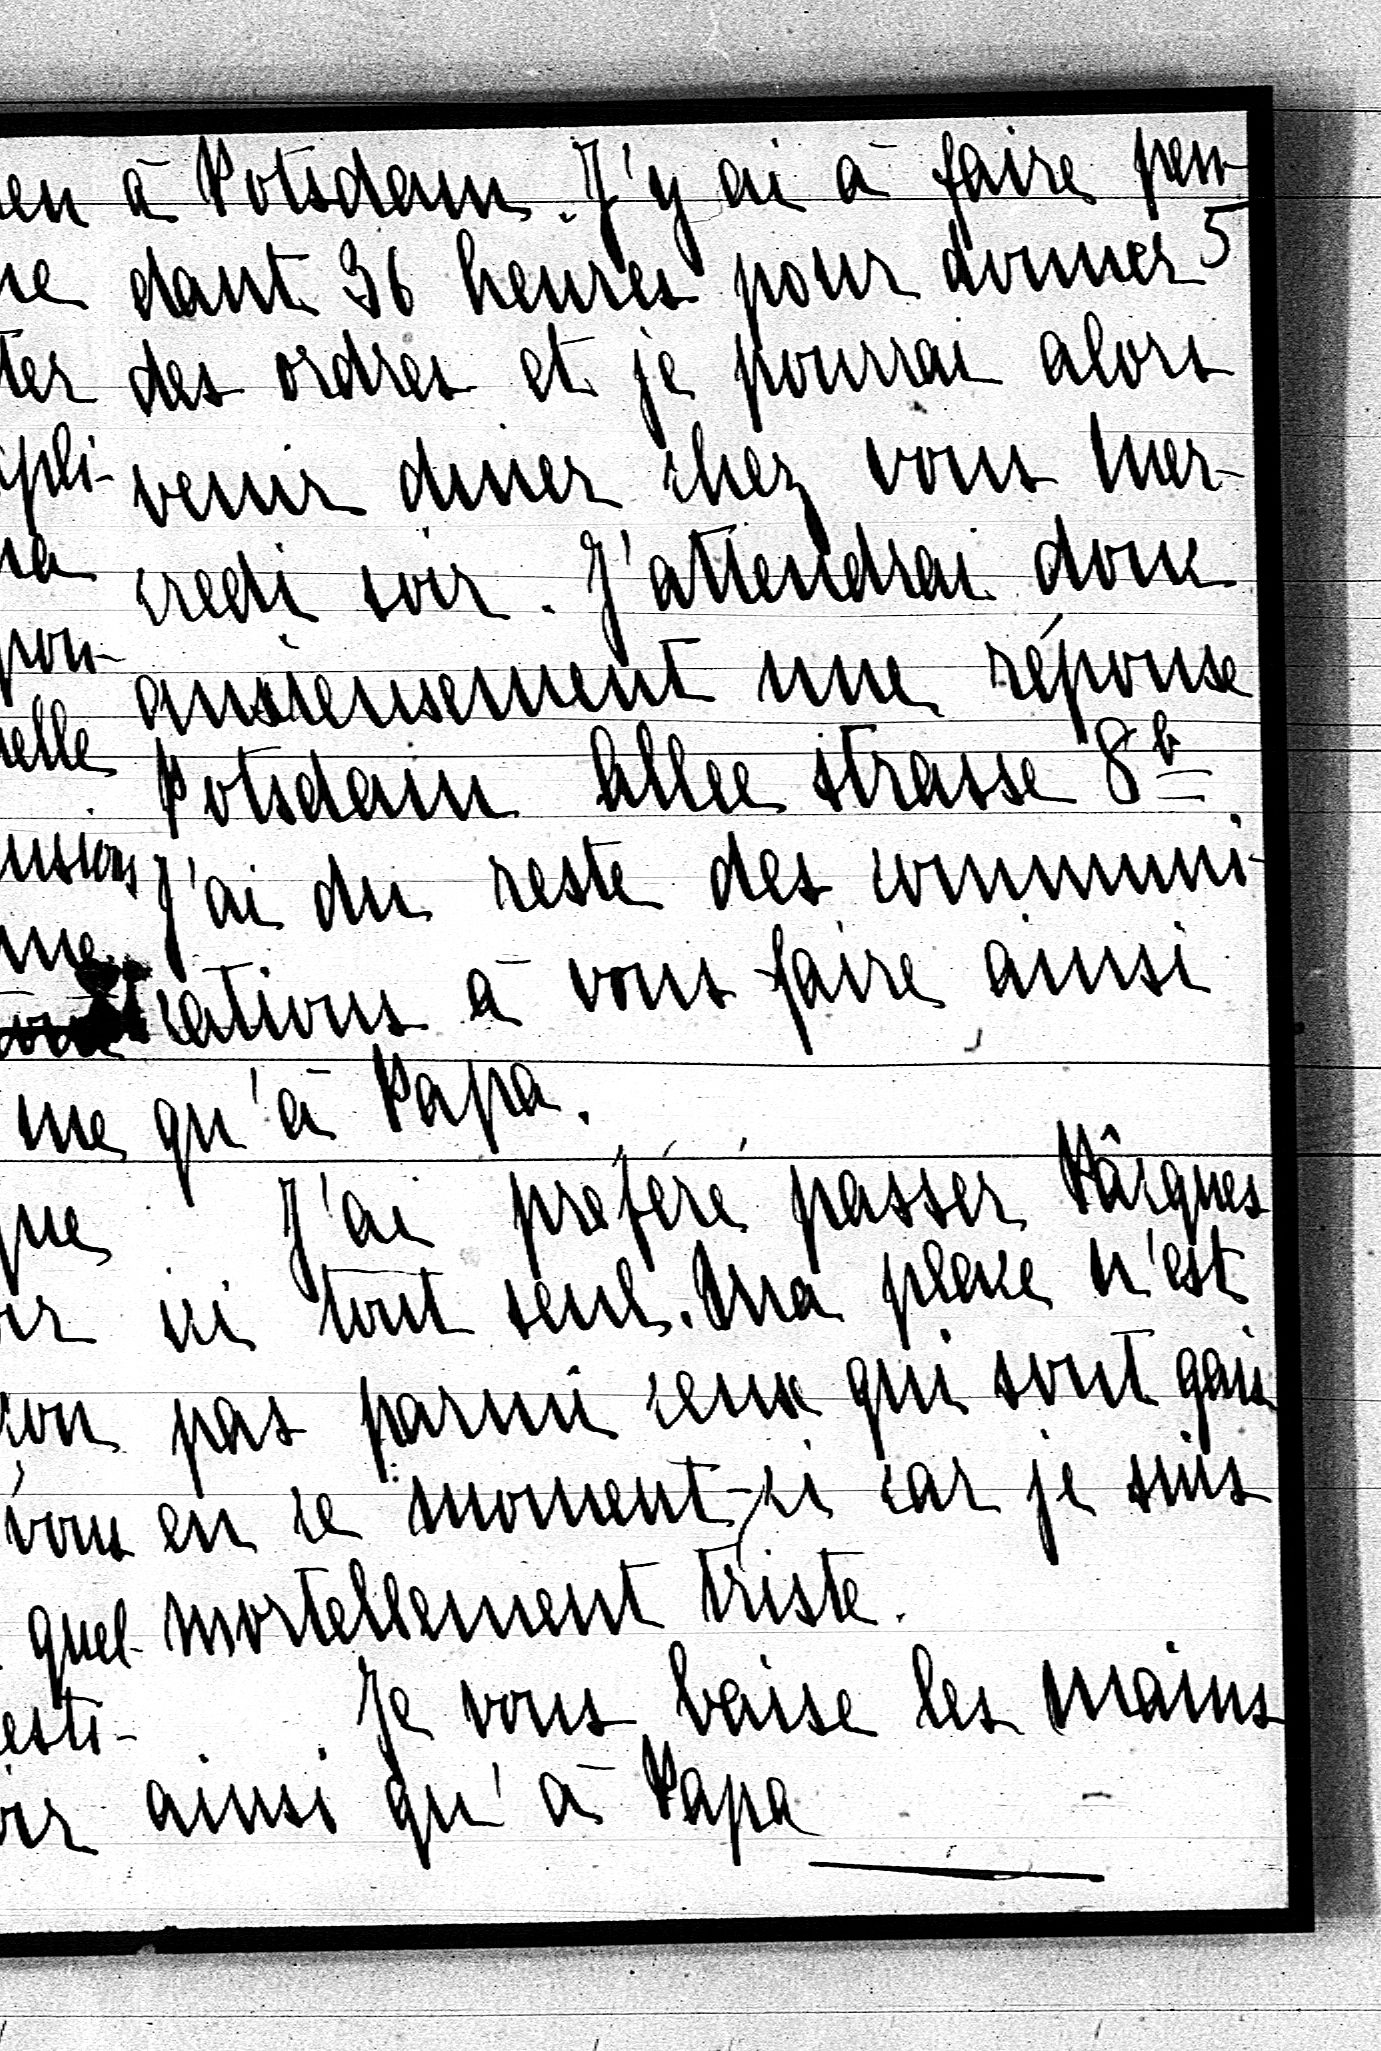 en à Potsdam. J'y ai à faire pen-
5
ne dant 36 heures pour donner
ter des ordres et je pourrai alors
pli- venir diner chez vous mer-
na credi soir. J'attendrai donc
pou- anxieusement une réponse
elle Potsdam Allee strasse 8b
usions J'ai du reste des communi-
me cations à vous faire ainsi
me qu'à Papa.
que J'ai préféré passer Pâques
ir ici tout seul. Ma place n'est
con pas parmi ceux qui sont gais
vous en ce moment-ci car je suis
quel- mortellement triste.
esti- Je vous baise les mains
oir ainsi qu'à Papa